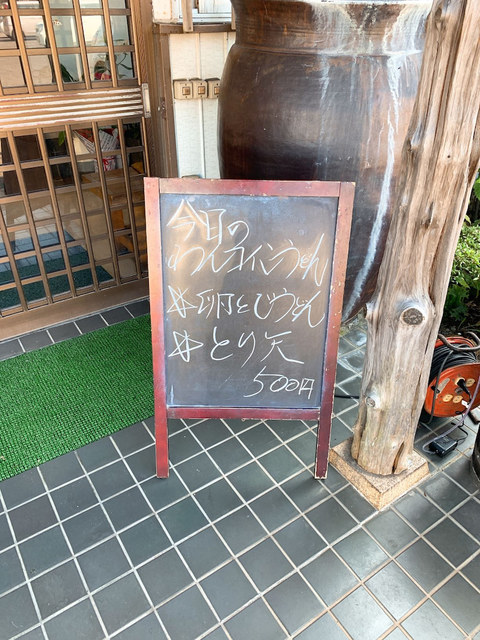 今日の
わんコインうどん
☆卵とじうどん
☆とり天
500円